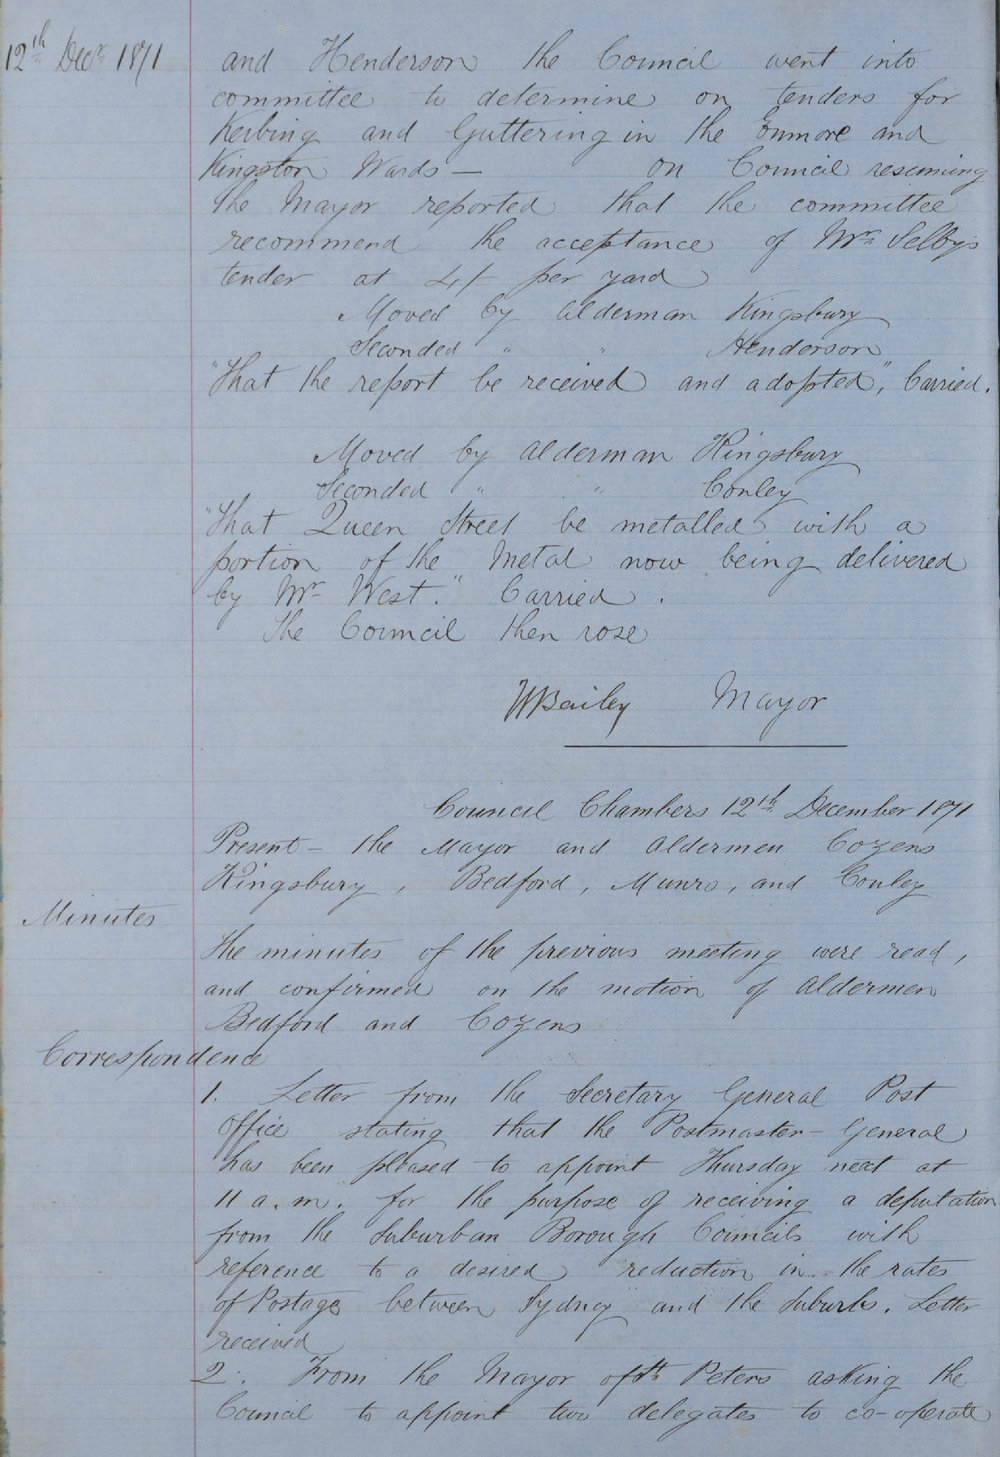 12th Decr 1871
and Henderson the Council went into
committee to determine on tenders for
Kerbing and Guttering in the Enmore and
Kingston Wards — on Council resuming
the Mayor reported that the committee
recommend the acceptance of Mr Selby's
tender at 4/ per yard
Moved by Alderman Kingsbury
Seconded " " Henderson
"That the report be received and adopted", Carried.
Moved by Alderman Kingsbury
Seconded " " Conley
"That Queen Street be metalled with a
portion of the Metal now being delivered
by Mr West." Carried.
The Council then rose
Bailey Mayor
Council Chambers 12th December 1871
Present – the Mayor and Aldermen Cozens
Kingsbury, Bedford, Munro, and Conley
Minutes
The minutes of the previous meeting were read,
and confirmed on the motion of Aldermen
Bedford and Cozens
Correspondence
1. Letter from the Secretary General Post
Office stating that the Postmaster-General
has been pleased to appoint Thursday next at
11 a.m. for the purpose of receiving a deputation
from the Suburban Borough Councils with
reference to a desired reduction in the rates
of Postage between Sydney and the Suburbs. Letter
received
2. From the Mayor of St Peters asking the
Council to appoint two delegates to co-operate